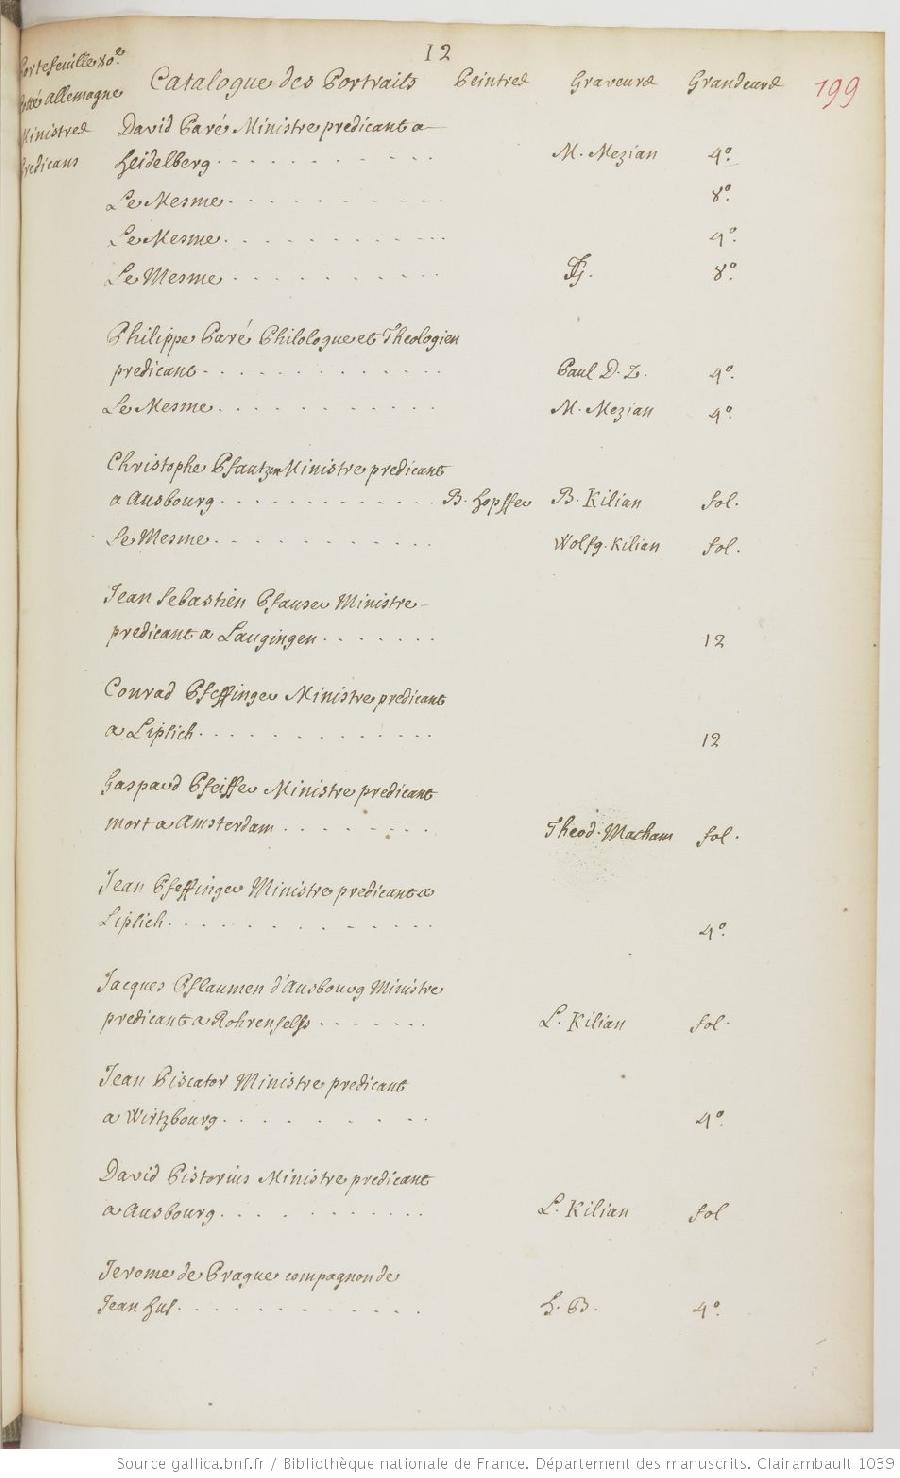 12
Portefeuille 80e
Catalogue des Portraits Peintres Graveurs Grandeurs 199
Allemagne
Ministres David Paré Ministre predicant a
Predicans Heidelberg . . . . . . . . . . M. Mezian 4o.
Le Mesme . . . . . . . . . . 8o.
Le Mesme . . . . . . . . . . 4o.
Le Mesme . . . . . . . . . . 8o.
Philippe Paré Philologue et Theologien
predicant . . . . . . . . . . Paul D. Z. 4o.
Le Mesme . . . . . . . . . . M. Mezian 4o.
Christophe Pfautzen Ministre predicant
a Ausbourg . . . . . . . . . . B. Hopffer B. Kilian fol.
Le Mesme . . . . . . . . . . Wolfg. Kilian fol.
Jean Sebastien Pfauser Ministre
predicant a Laugingen . . . . . . . 12
Conrad Pfeffinger Ministre predicant
a Lipsich . . . . . . . . . . 12
Gaspard Pfeiffer Ministre predicant
mort a Amsterdam . . . . . . . . Theod. Matham fol.
Jean Pfeffinger Ministre predicant a
Lipsich . . . . . . . . . . 4o.
Jacques Pflaumen d'Ausbourg Ministre
predicant a Rohrenfelss . . . . . . L. Kilian fol.
Jean Piscator Ministre predicant
a Wirtzbourg . . . . . . . . . 4o.
David Pistorius Ministre predicant
a Ausbourg . . . . . . . . . . L. Kilian fol
Jerome de Prague compagnon de
Jean Hus . . . . . . . . . . H. B. 4o.
Source gallica.bnf.fr / Bibliothèque nationale de France. Département des manuscrits. Clairambault 1039